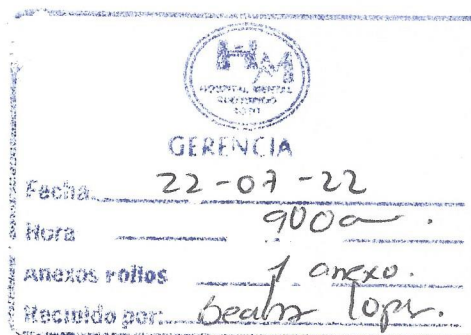 HM
HOSPITAL MENTAL
GERENCIA
Fecha 22-07-22
Hora 900a.
Anexos rollos 1 anexo.
Recibido por: Beatriz Lopz.